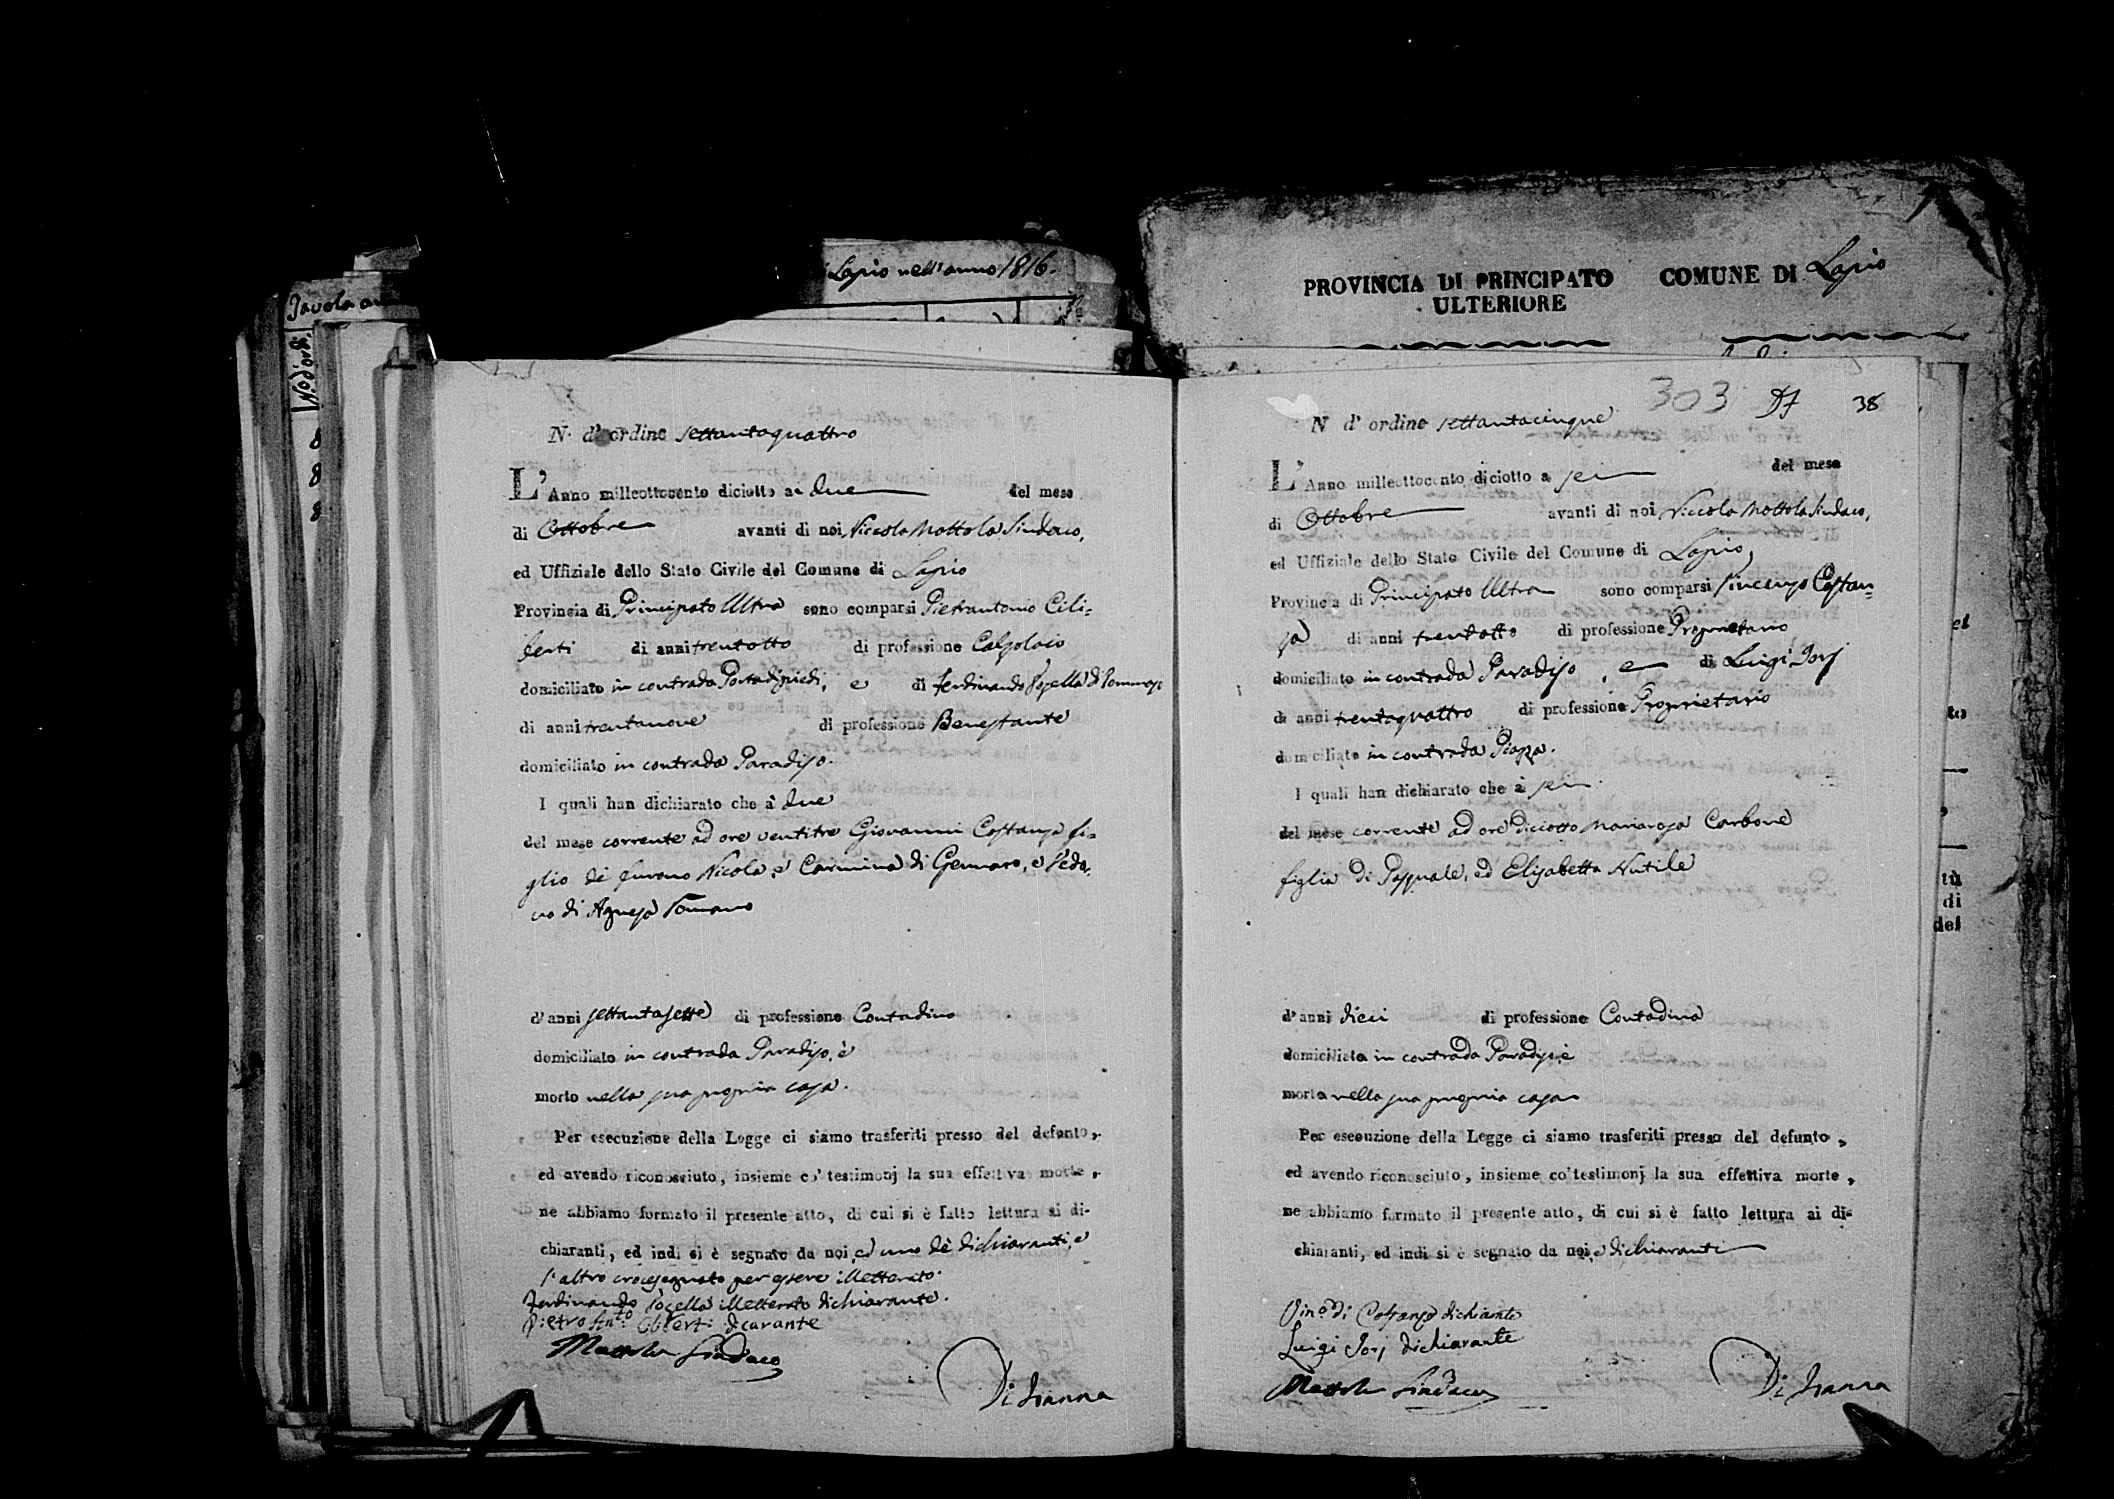 Lapio nell'anno 1816.
Tavola
N.o d'ordi.
8
8
8
PROVINCIA DI PRINCIPATO
ULTERIORE
COMUNE DI Lapio
N. d'ordine settantaquattro
L'Anno milleottocento diciotto a due del mese
di Ottobre avanti di noi Niccola Mottola Sindaco,
ed Uffiziale dello Stato Civile del Comune di Lapio
Provincia di Principato Ultra sono comparsi Pietrantonio Cili=
berti di anni trentotto di professione Calzolaio
domiciliato in contrada e di Ferdinando
di anni trentanove di professione Benestante
domiciliato in contrada Paradiso.
I quali han dichiarato che a due
del mese corrente ad ore ventitre Giovanni Costanza fi=
glio di Nicola, e Carmina di Gennaro, e Vedo,
vo di Agnesa Romano
d'anni settantasette di professione Contadino
domiciliato in contrada Paradiso, è
morto nella sua propria casa.
Per esecuzione della Legge ci siamo trasferiti presso del defunto,
ed avendo riconosciuto, insieme co' testimonj la sua effettiva morte,
ne abbiamo formato il presente atto, di cui si è fatto lettura ai di-
chiaranti, ed indi si è segnato da noi, ed uno dè dichiaranti, e
l'altro crocesegnato per essere illetterato.
Ferdinando illetterato dichiarante.
Mottola Sindaco
Di Ianna
303 38
N d'ordine settantacinque
L'Anno milleottocento diciotto a sei del mese
di Ottobre avanti di noi Niccola Mottola Sindaco,
ed Uffiziale dello Stato Civile del Comune di Lapio,
Provincia di Principato Ultra sono comparsi Vincenzo Costan=
za di anni trentotto di professione Proprietario
domiciliato in contrada Paradiso, e di Luigi Iorj
di anni trentaquattro di professione Proprietario
domiciliato in contrada Piazza.
I quali han dichiarato che a sei
del mese corrente ad ore diciotto Mariarosa Carbone
figlia di Pasquale, ed Elisabetta Nutile
d'anni dieci di professione Contadina
domiciliata in contrada Paradiso, è
morta nella sua propria casa
Per esecuzione della Legge ci siamo trasferiti presso del defunto,
ed avendo riconosciuto, insieme co' testimonj la sua effettiva morte,
ne abbiamo formato il presente atto, di cui si è fatto lettura ai di-
chiaranti, ed indi si è segnato da noi, e dichiaranti
Vin.o di Costanzo dichiarante
Luigi Iorj dichiarante
Mottola Sindaco
Di Ianna
el
to
tù
di
del